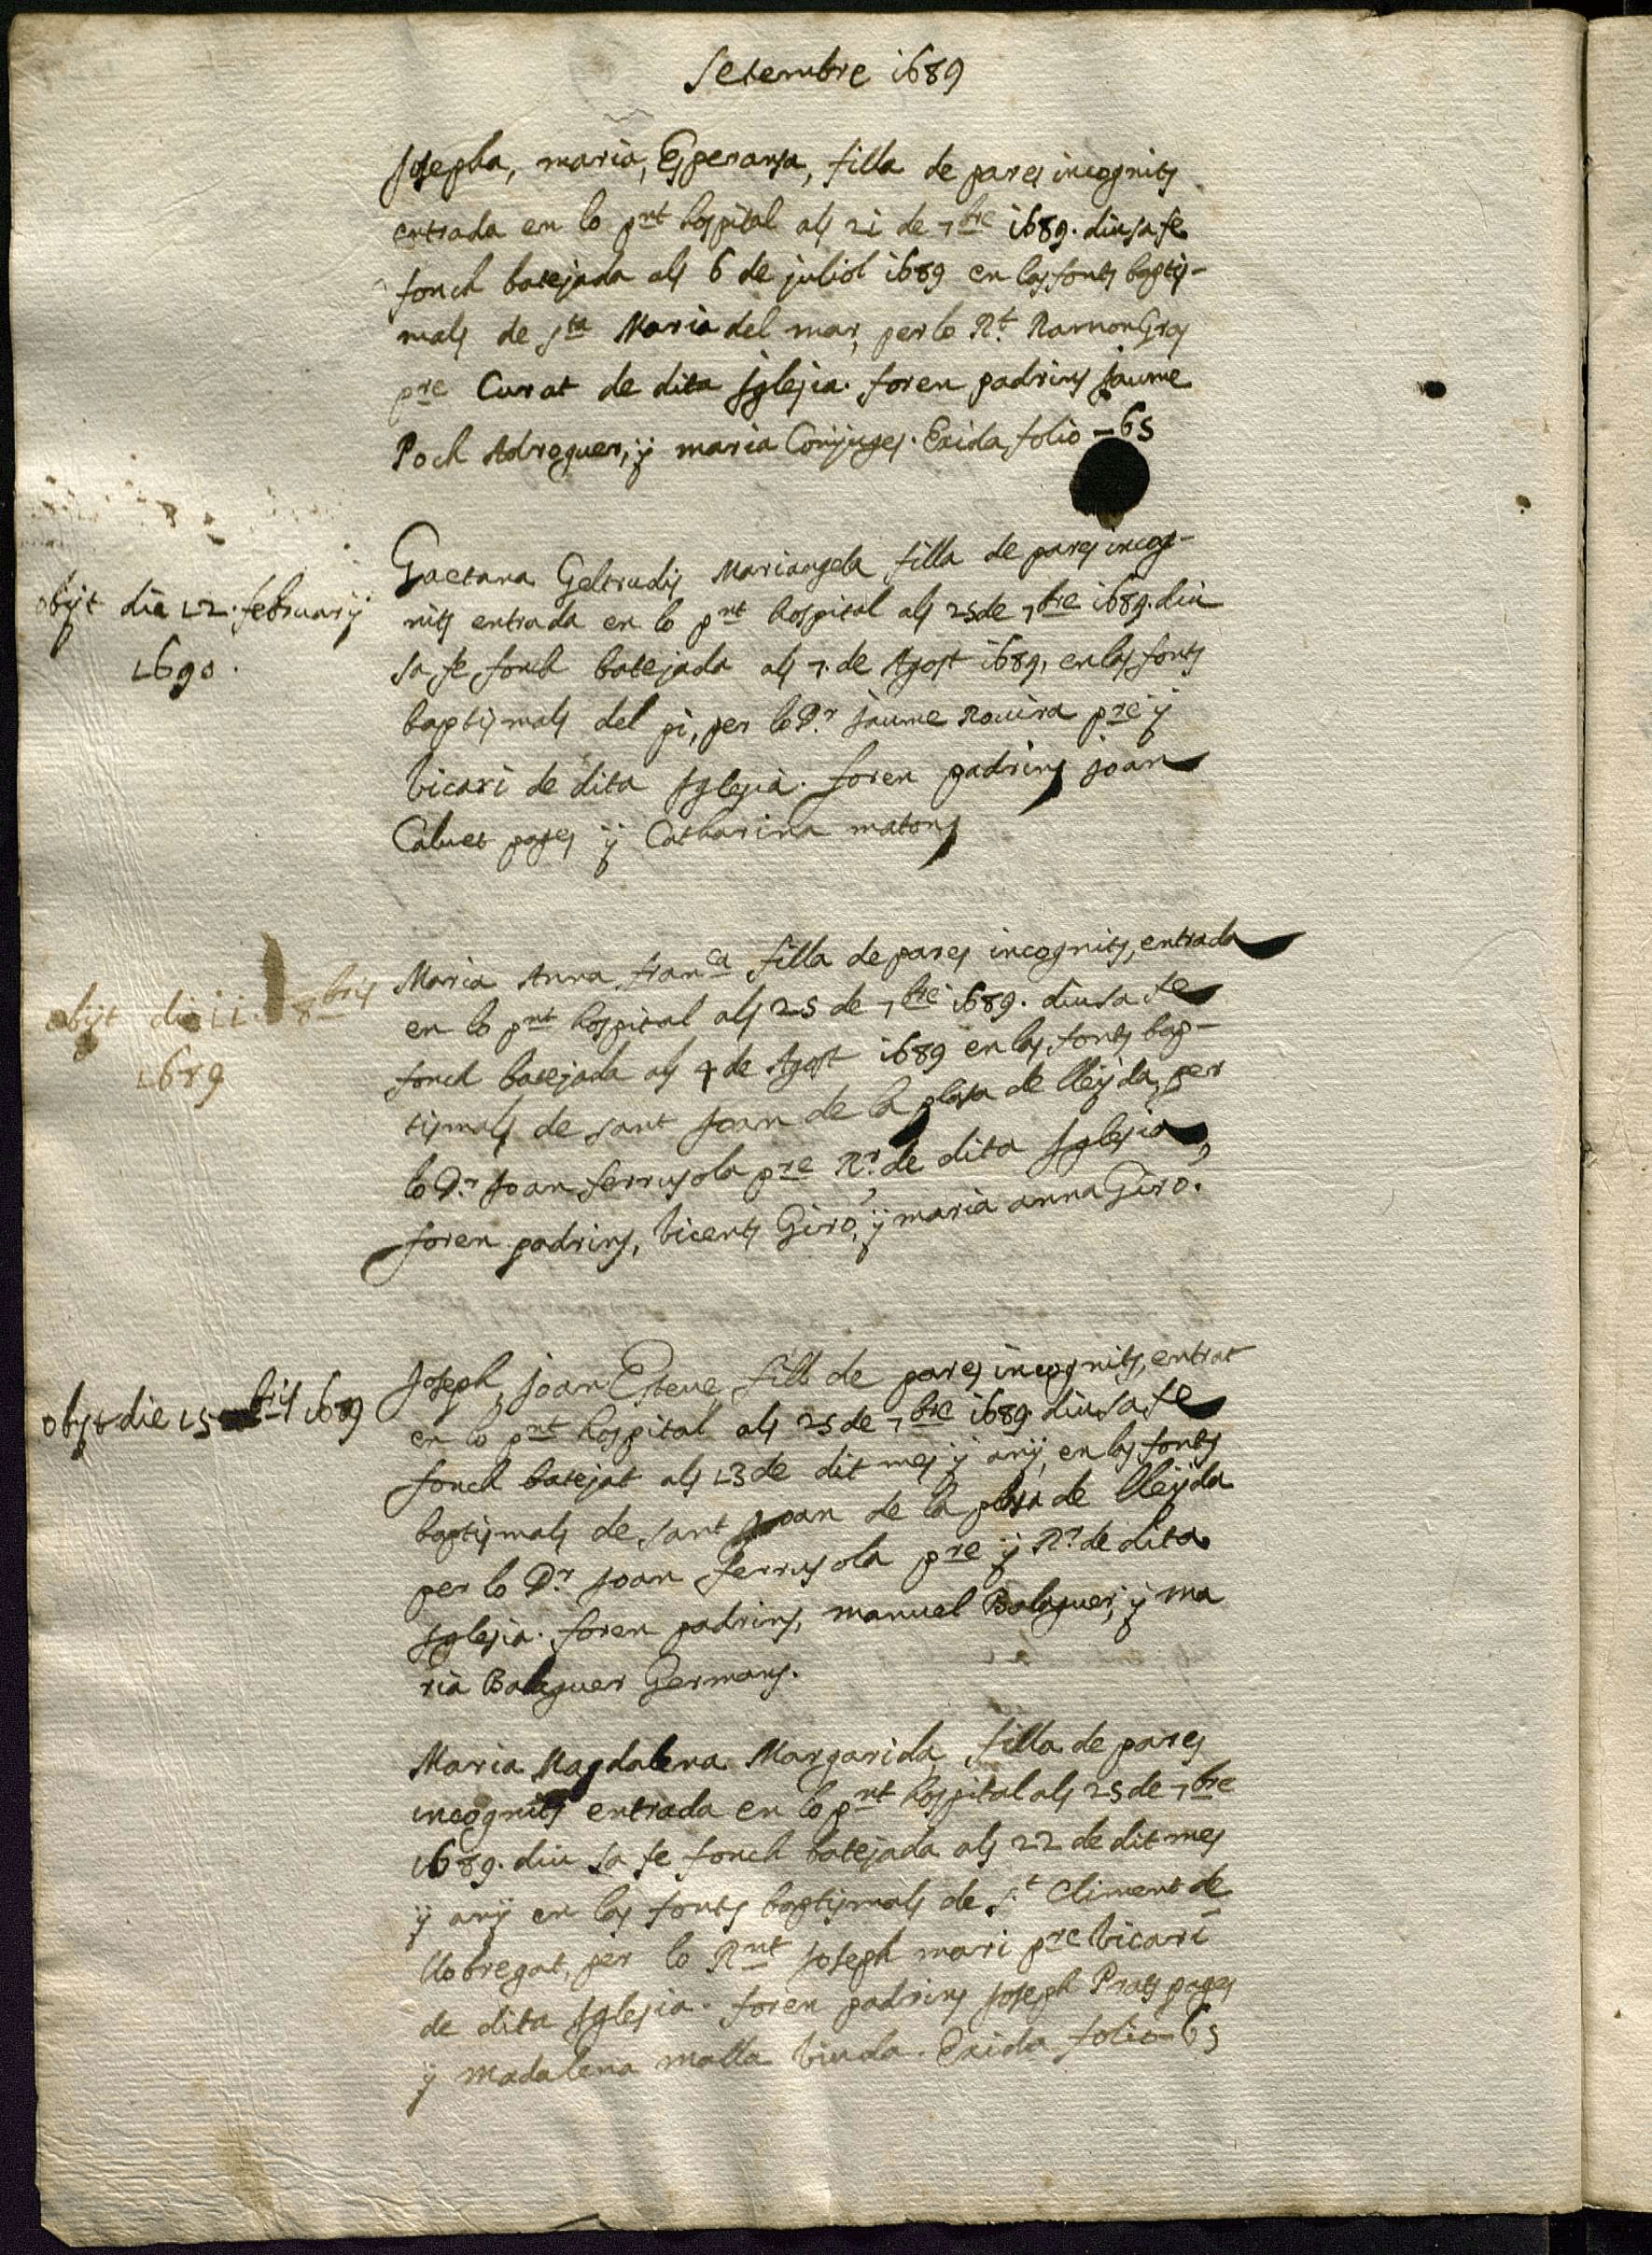 Setembre 1689
Josepha, maria, Esperansa, filla de pares incognits
entrada en lo pnt hospital als 21 de 7bre 1689. diu sa fe
fonch batejada als 6 de juliol 1689 en las fonts baptis-
mals de sta Maria del mar, per lo Rt. Ramon Gros
pre Curat de dita Iglesia. foren padrins Jaume
Poch Adroguer, ÿ maria Conjuges. Exida folio - 65
Gaetana Geltrudis Mariangela filla de pares incog-
nits entrada en lo pnt hospital als 25 de 7bre 1689. diu
sa fe fonch batejada als 7. de Agost 1689, en las fonts
baptismals del pi, per lo Dr. Jaume Rovira pre ÿ
vicari de dita Iglesia. foren padrins joan
Calvet pages ÿ Catharina matons
obijt die 12. februarij
1690.
Maria Anna franca filla de pares incognits, entrada
en lo pnt hospital als 25 de 7bre 1689. diu sa fe
fonch batejada als 4 de Agost 1689 en las fonts bap-
tismals de sant Joan de la plasa de lleÿda, per
lo Dr. Joan ferrusola pre Rr. de dita Iglesia,
foren padrins, vicents Giro, ÿ maria anna Giro.
obijt die 11. 8bris
1689
Joseph, joan Esteve, fill de pares incognits, entrat
en lo pnt hospital als 25 de 7bre 1689. diu sa fe
fonch batejat als 13 de dit mes ÿ anÿ, en las fonts
baptismals de sant Joan de la plasa de lleÿda
per lo Dr. Joan ferrusola pre ÿ Rr. de dita
Iglesia. foren padrins, manuel Balaguer, ÿ ma
ria Balaguer Germans.
obijt die 15 bris 1689
Maria Magdalena Margarida, filla de pares
incognits entrada en lo pnt hospital als 25 de 7bre
1689. diu sa fe fonch batejada als 22 de dit mes
ÿ anÿ en las fonts baptismals de St. Climent de
llobregat, per lo Rnt Joseph mari pre vicari
de dita Iglesia. foren padrins Joseph Prats pages
ÿ Madalena malla viuda. Exida folio - 65